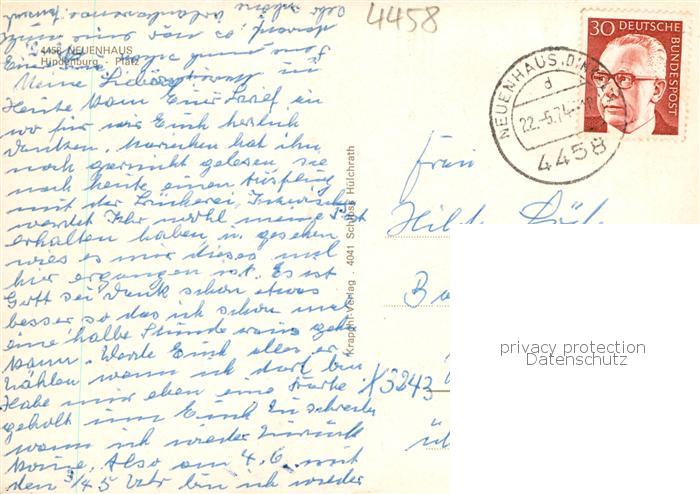 4458
4458 NEUENHAUS
Hindenburg - Platz
30 DEUTSCHE BUNDESPOST
NEUENHAUS
d
22.-5.74
4458
Krapohl-Verlag . 4041 Schloss Hülchrath
Meine Lieben
Heute kam Euer Brief an
wo für wir Euch herzlich
danken, hat ihn
noch garnicht gelesen sie
noch heute einen Ausflug
mit der Inzwischen
werdet Ihr wohl meine Post
erhalten haben u. gesehen
wies es mir dieses mal
hier ergangen ist. Es ist
Gott sei Dank schon etwas
besser so das ich schon mal
eine halbe Stunde raus gehen
kann. Werde Euch alles er-
zählen wenn ich dort bin
Habe mir eben eine Karte
geholt um Euch zu schreiben
wann ich wieder zurück
komme. Also am 4.6. mit
den 3/4 5 Uhr bin ich wieder
Frau
Hilde
Ba
X3243
ü
privacy protection
Datenschutz